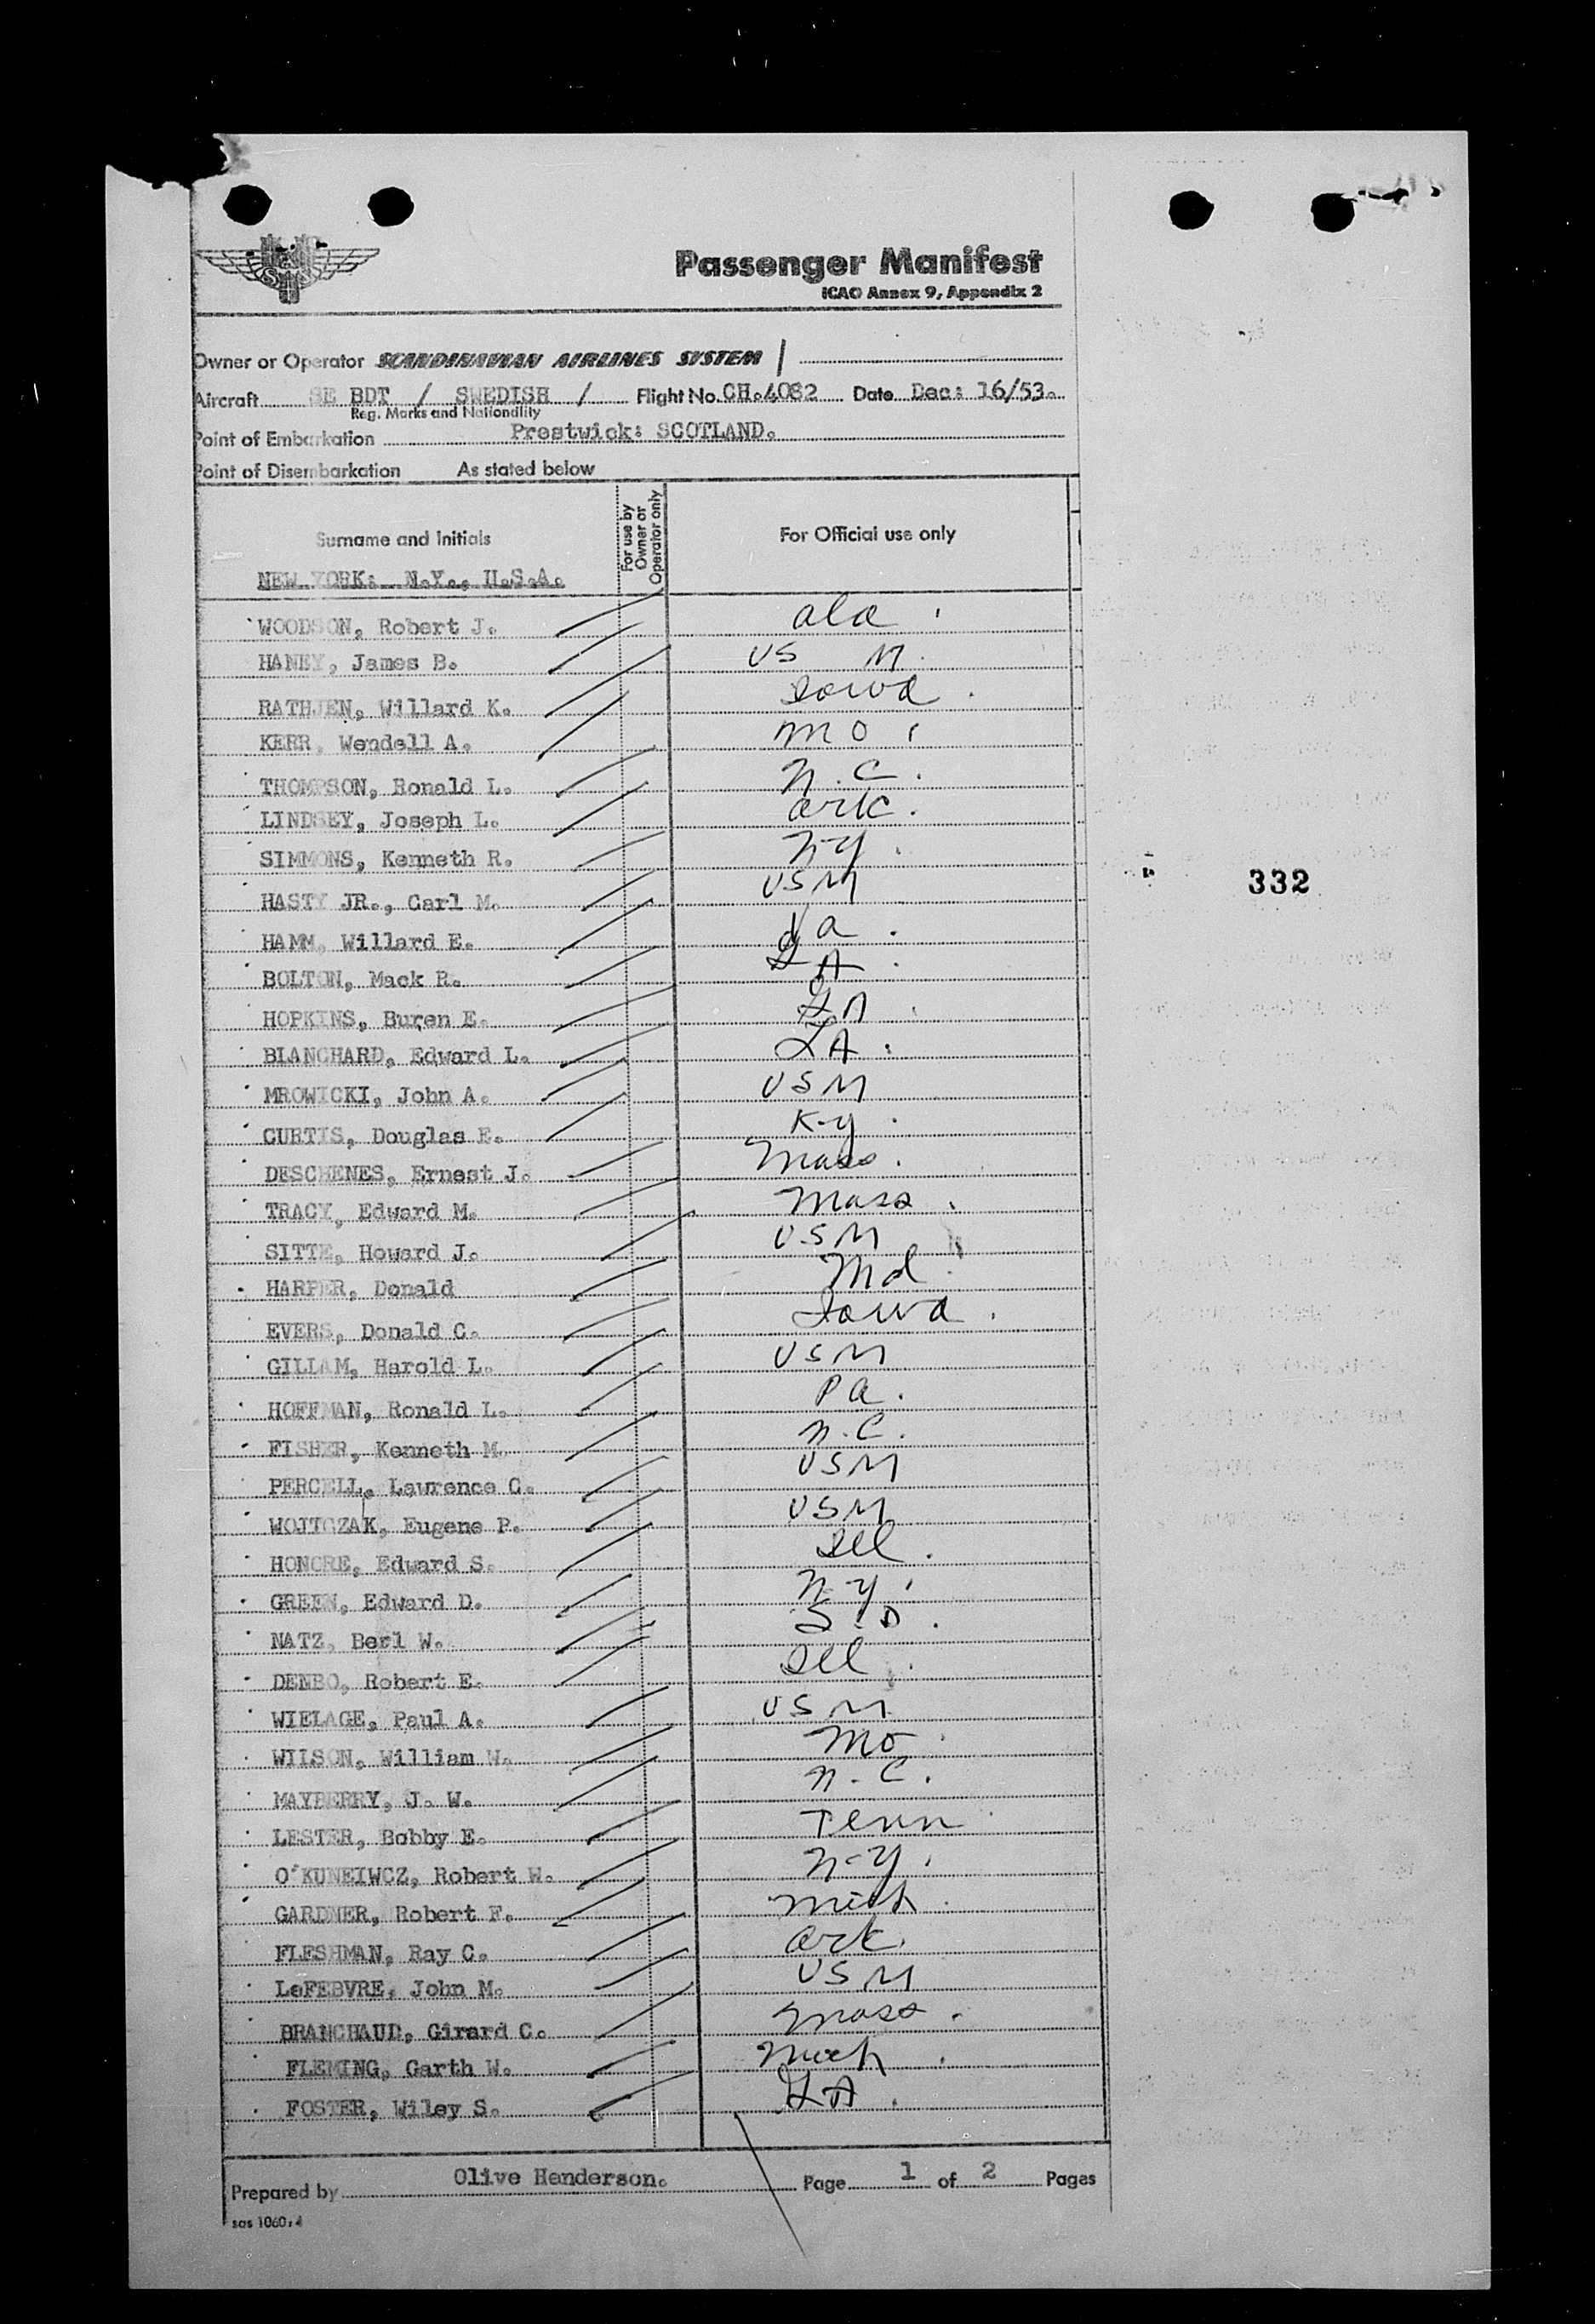 SAS
Passenger Manifest
ICAO Annex 9, Appendix 2
Owner or Operator SCANDINAVIAN AIRLINES SYSTEM
Aircraft SE BDT / SWEDISH / Flight No. CH.4082 Date Dec: 16/53.
Reg. Marks and Nationality
Point of Embarkation Prestwick: SCOTLAND.
Point of Disembarkation As stated below
Surname and Initials For use by Owner or Operator only For Official use only
NEW YORK: N.Y., U.S.A.
WOODSON, Robert J. ala
HANEY, James B. US M
RATHJEN, Willard K. Iowa
KERR, Wendell A. Mo
THOMPSON, Ronald L. N.C.
LINDSEY, Joseph L. ark.
SIMMONS, Kenneth R. N-Y
HASTY JR., Carl M. USM
332
HAMM, Willard E. Va
BOLTON, Mack R. GA
HOPKINS, Buren E. GA
BLANCHARD, Edward L. LA
MROWICKI, John A. USM
CURTIS, Douglas E. K-y
DESCHENES, Ernest J. Mass.
TRACY, Edward M. Mass
SITTE, Howard J. USM
HARPER, Donald Md
EVERS, Donald C. Iowa
GILLAM, Harold L. USM
HOFFMAN, Ronald L. Pa.
FISHER, Kenneth M. N.C.
PERCELL, Lawrence C. USM
WOJTCZAK, Eugene P. USM
HONORE, Edward S. Ill.
GREEN, Edward D. N-Y
NATZ, Berl W. S.D.
DENBO, Robert E. Ill
WIELAGE, Paul A. USM
WILSON, William W. Mo
MAYBERRY, J. W. N.C.
LESTER, Bobby E. Tenn
O'KUNEIWCZ, Robert W. N-Y
GARDNER, Robert F. Mich
FLESHMAN, Ray C. Ark
LeFEBVRE, John M. USM
BRANCHAUD, Girard C. Mass
FLEMING, Garth W. Mich
FOSTER, Wiley S. GA
Prepared by Olive Henderson. Page 1 of 2 Pages
sas 1060:4